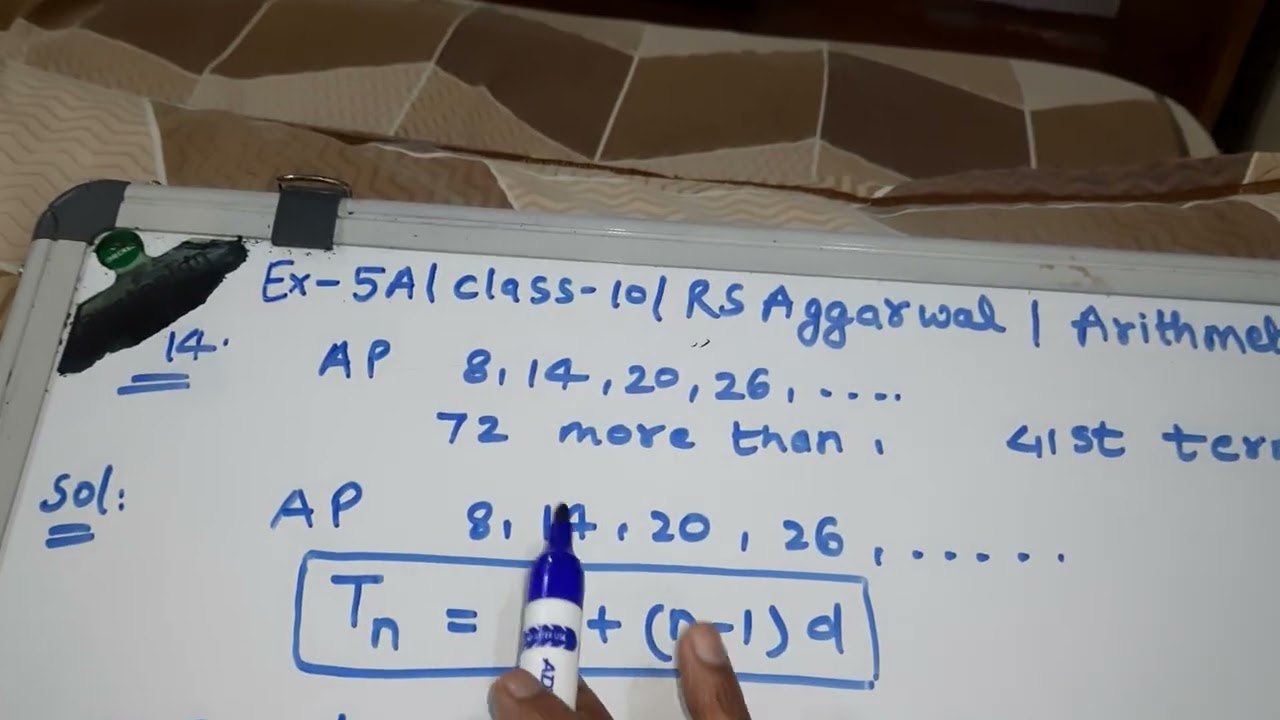 Ex-5A| class-10| RS Aggarwal | Arithmet
14. AP 8, 14, 20, 26, .....
72 more than, 41st ter
Sol: AP 8, 14, 20, 26, ......
Tn = + (n-1) d